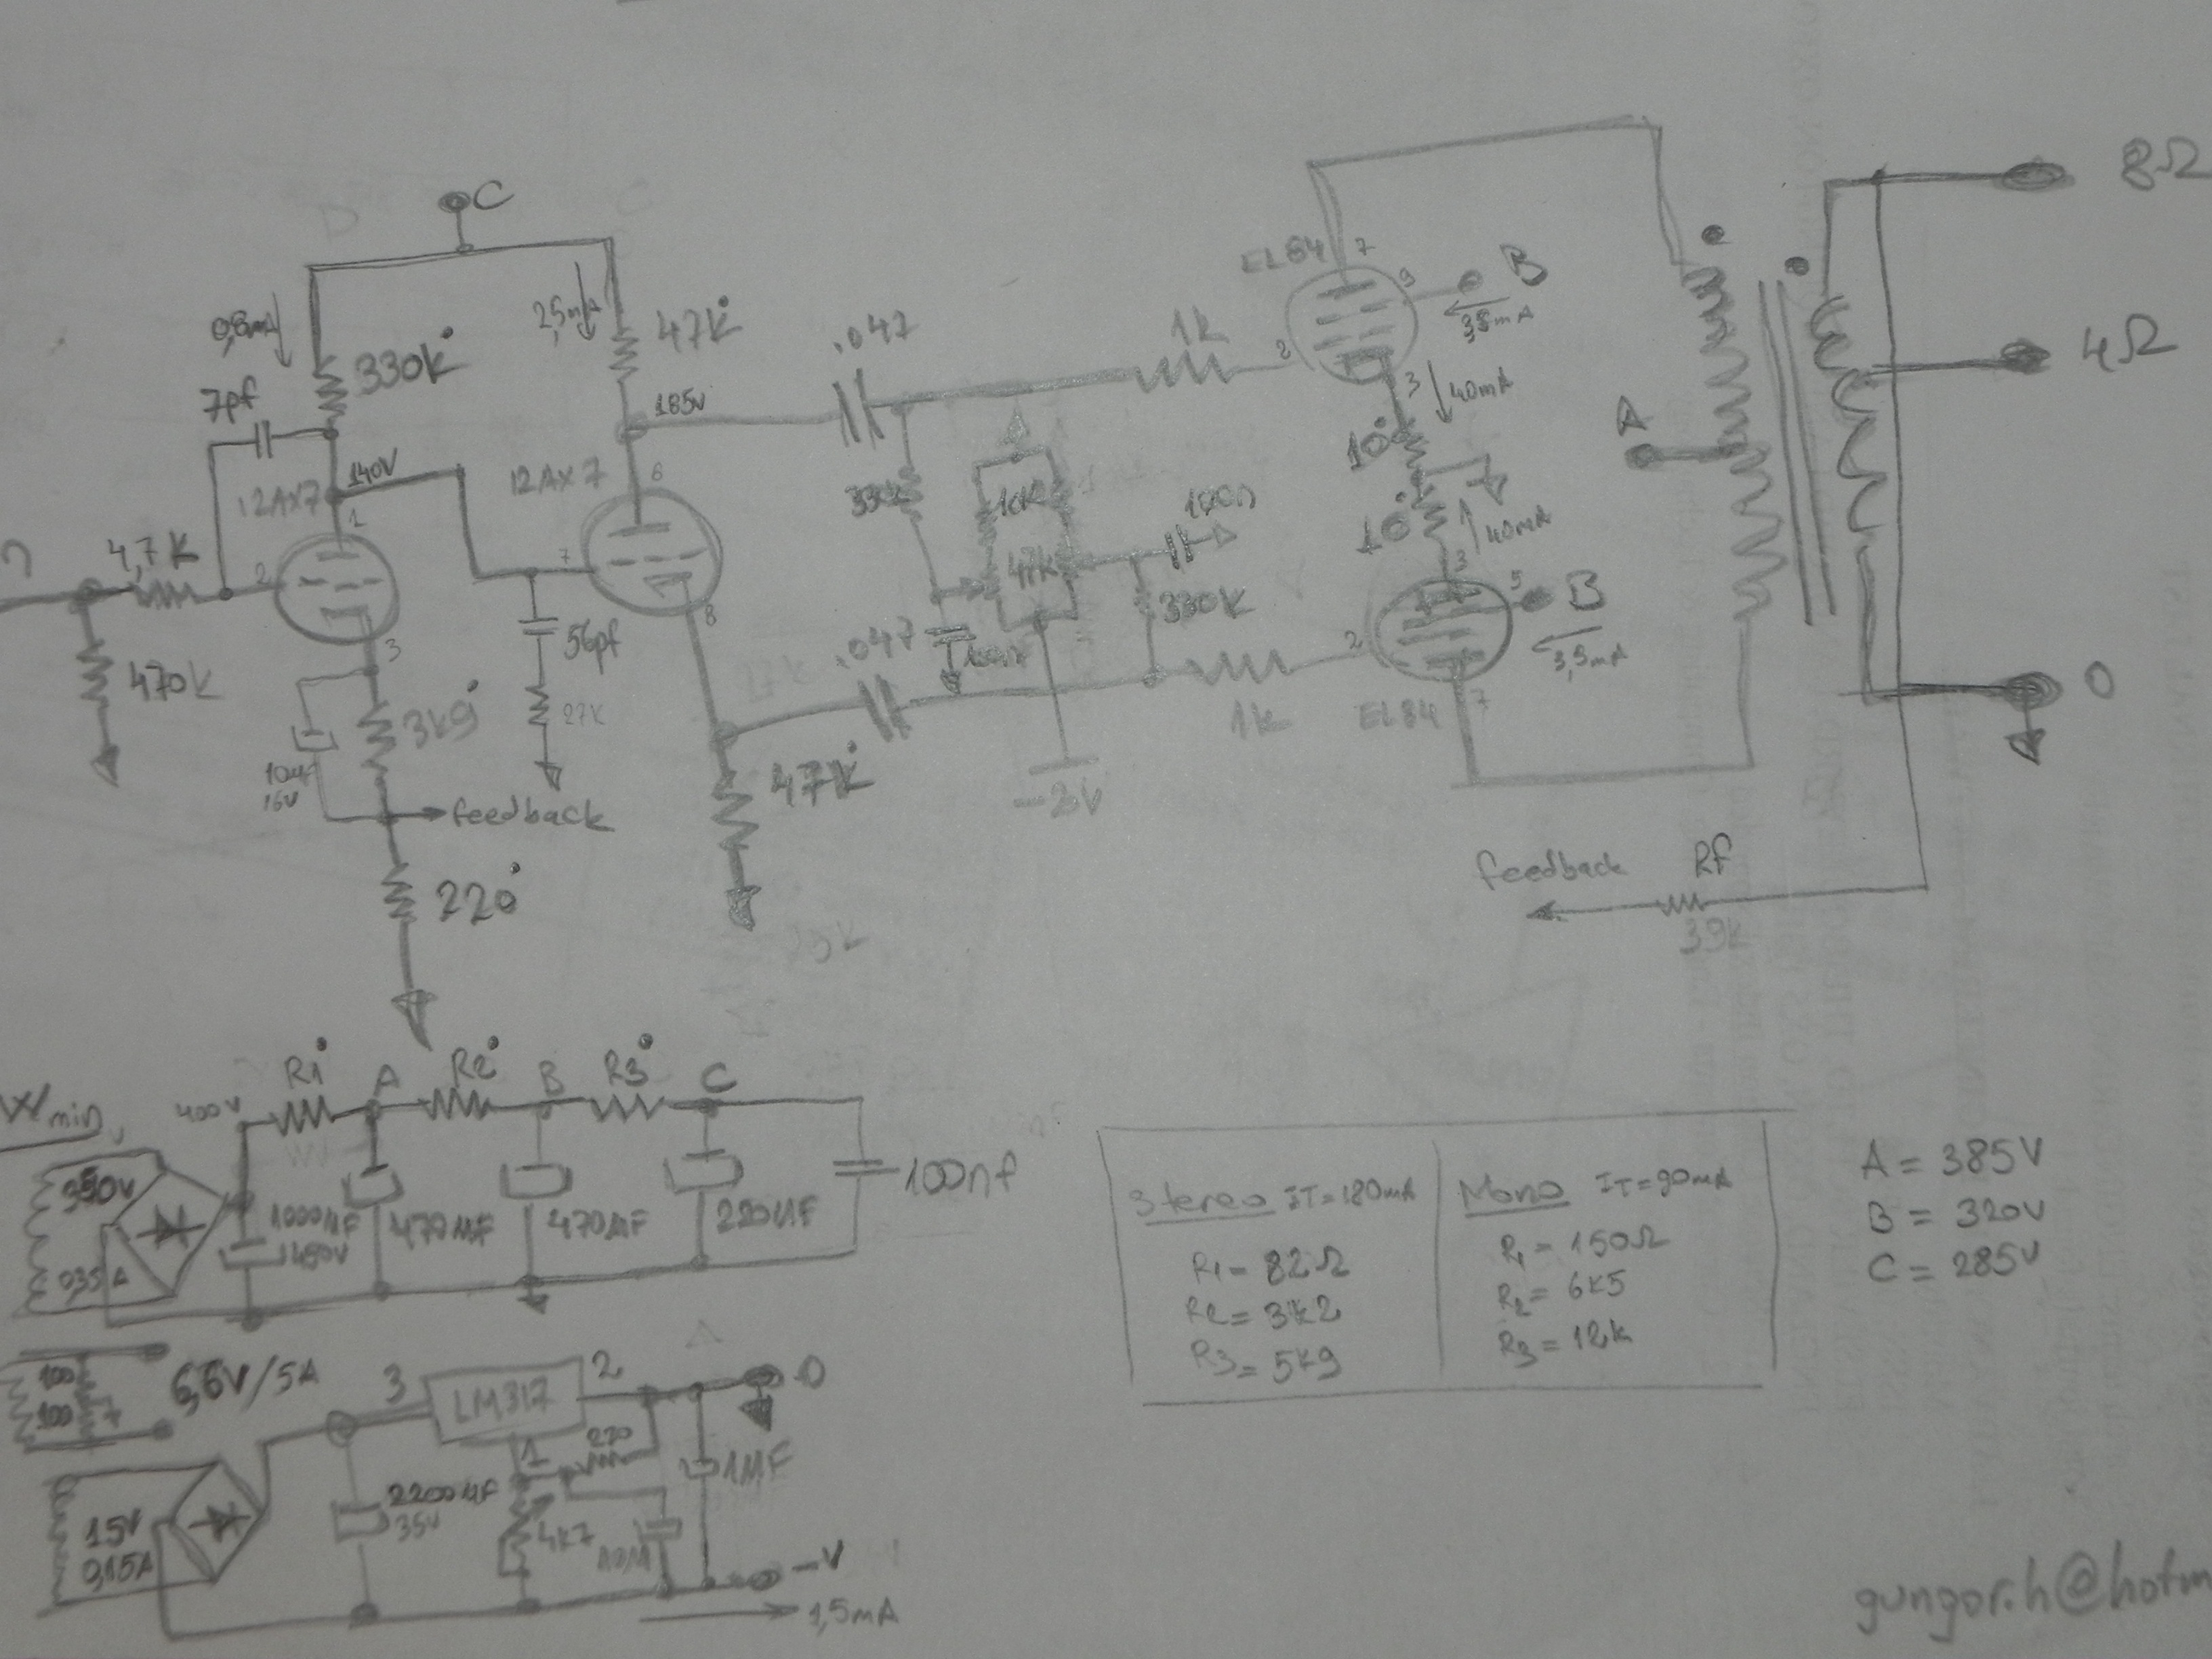 C
0,8mA
2,5mA
47K
330K
7pf
185V
140V
12AX7
12AX7
1
6
4,7K
2
7
470K
3
8
56pf
27K
3k9
10µf
16V
feedback
220
47K
.047
1k
330K
10K
47K
100n
330K
.047
1k
EL84
7
9
B
3,5mA
2
3
40mA
10
10
40mA
3
B
3,5mA
2
EL84
7
A
8Ω
4Ω
0
feedback
Rf
39k
Wmin,
400V
R1
A
R2
B
R3
C
350V
0,35A
1000µF
470µF
470µF
220µF
100nf
Stereo IT=180mA
R1= 82Ω
R2= 3k2
R3= 5k9
Mono IT=90mA
R1= 150Ω
R2= 6k5
R3= 12k
A = 385V
B = 320V
C = 285V
100
100
6,6V/5A
3
LM317
2
0
1
220
1µF
2200µF
35V
4k7
10µ
15V
0,15A
-V
1,5mA
gungor.h@hotm